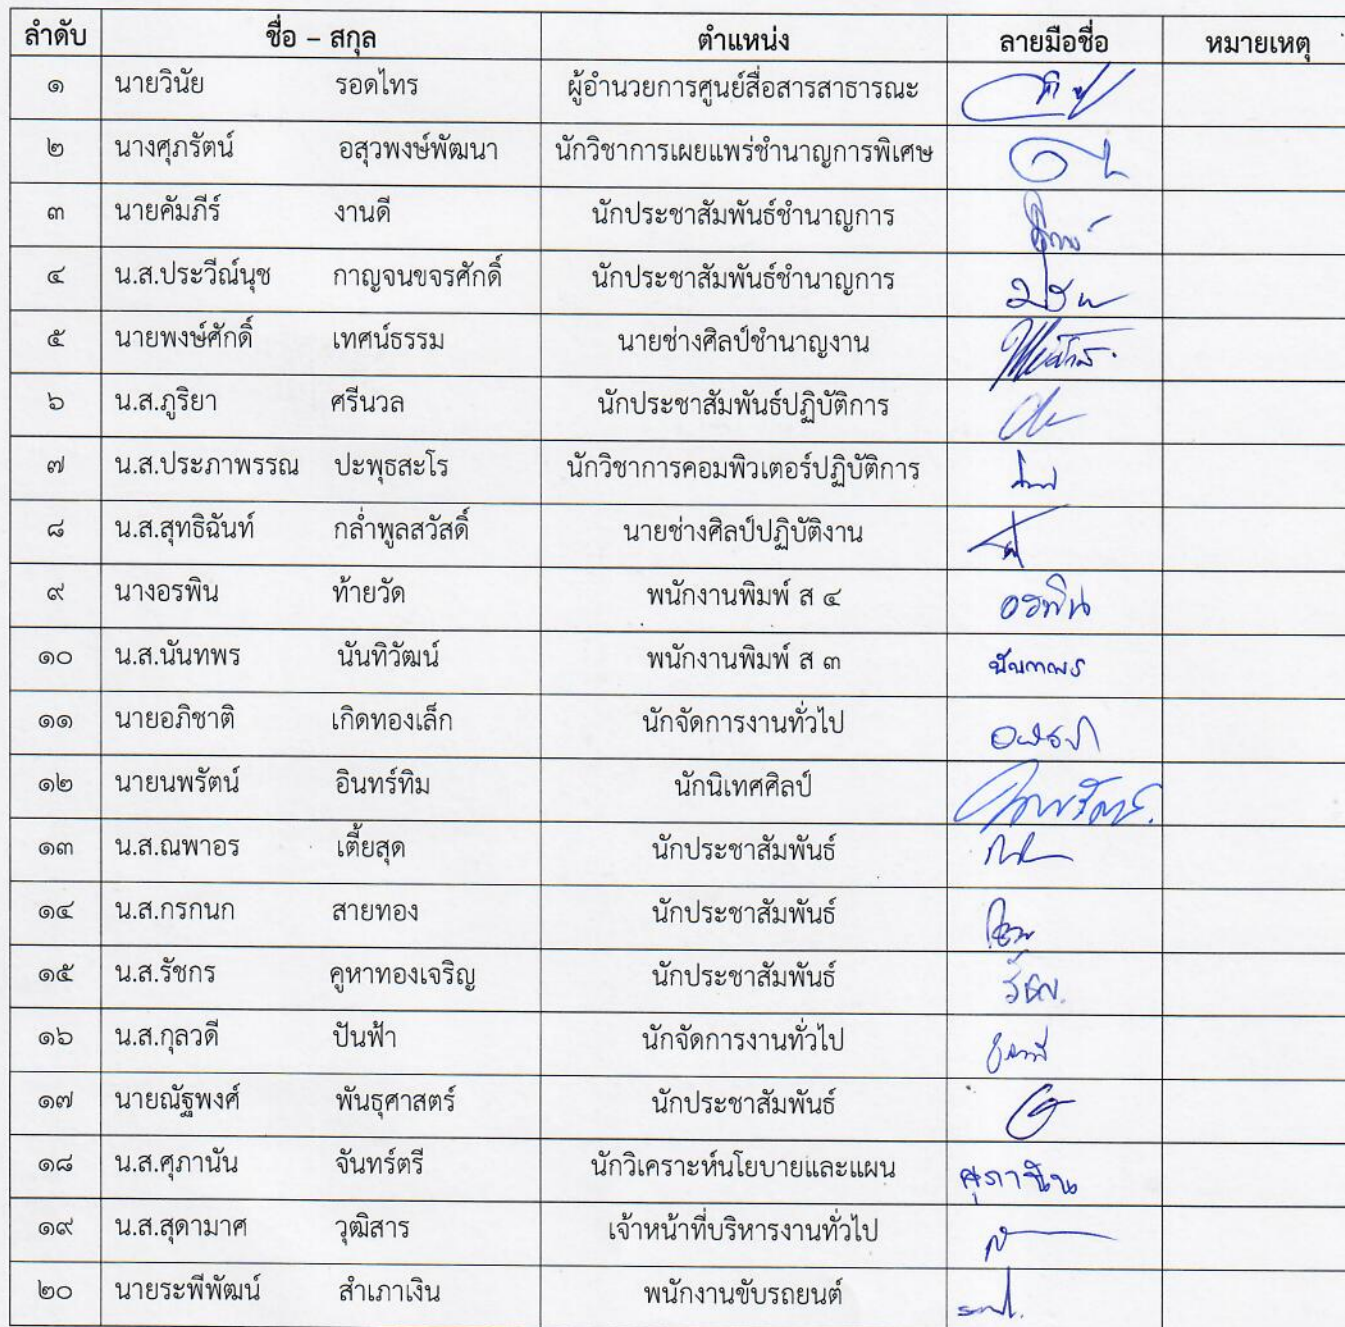 ลำดับ ชื่อ – สกุล ตำแหน่ง ลายมือชื่อ หมายเหตุ
๑ นายวินัย รอดไทร ผู้อำนวยการศูนย์สื่อสารสาธารณะ
๒ นางศุภรัตน์ อสุวพงษ์พัฒนา นักวิชาการเผยแพร่ชำนาญการพิเศษ
๓ นายคัมภีร์ งานดี นักประชาสัมพันธ์ชำนาญการ
๔ น.ส.ประวีณ์นุช กาญจนขจรศักดิ์ นักประชาสัมพันธ์ชำนาญการ
๕ นายพงษ์ศักดิ์ เทศน์ธรรม นายช่างศิลป์ชำนาญงาน
๖ น.ส.ภูริยา ศรีนวล นักประชาสัมพันธ์ปฏิบัติการ
๗ น.ส.ประภาพรรณ ปะพุธสะโร นักวิชาการคอมพิวเตอร์ปฏิบัติการ
๘ น.ส.สุทธิฉันท์ กล่ำพูลสวัสดิ์ นายช่างศิลป์ปฏิบัติงาน
๙ นางอรพิน ท้ายวัด พนักงานพิมพ์ ส ๔ อรพิน
๑๐ น.ส.นันทพร นันทิวัฒน์ พนักงานพิมพ์ ส ๓ นันทพร
๑๑ นายอภิชาติ เกิดทองเล็ก นักจัดการงานทั่วไป
๑๒ นายนพรัตน์ อินทร์ทิม นักนิเทศศิลป์
๑๓ น.ส.ณพาอร เตี้ยสุด นักประชาสัมพันธ์
๑๔ น.ส.กรกนก สายทอง นักประชาสัมพันธ์
๑๕ น.ส.รัชกร คูหาทองเจริญ นักประชาสัมพันธ์
๑๖ น.ส.กุลวดี ปันฟ้า นักจัดการงานทั่วไป
๑๗ นายณัฐพงศ์ พันธุศาสตร์ นักประชาสัมพันธ์
๑๘ น.ส.ศุภานัน จันทร์ตรี นักวิเคราะห์นโยบายและแผน ศุภานัน
๑๙ น.ส.สุดามาศ วุฒิสาร เจ้าหน้าที่บริหารงานทั่วไป
๒๐ นายระพีพัฒน์ สำเภาเงิน พนักงานขับรถยนต์